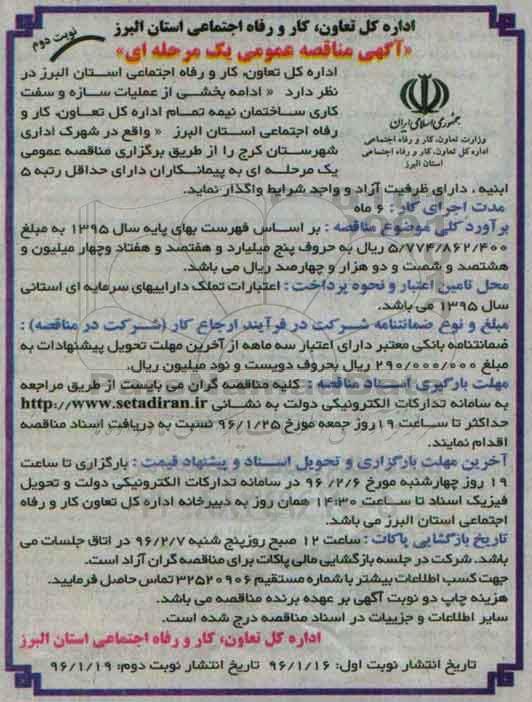 اداره کل تعاون، کار و رفاه اجتماعی استان البرز
نوبت دوم
«آگهی مناقصه عمومی یک مرحله ای»
جمهوری اسلامی ایران
وزارت تعاون، کار و رفاه اجتماعی
اداره کل تعاون، کار و رفاه اجتماعی
استان البرز
اداره کل تعاون، کار و رفاه اجتماعی استان البرز در
نظر دارد « ادامه بخشی از عملیات سازه و سفت
کاری ساختمان نیمه تمام اداره کل تعاون، کار و
رفاه اجتماعی استان البرز » واقع در شهرک اداری
شهرستان کرج را از طریق برگزاری مناقصه عمومی
یک مرحله ای به پیمانکاران دارای حداقل رتبه ۵
ابنیه ، دارای ظرفیت آزاد و واجد شرایط واگذار نماید.
مدت اجرای کار : ۶ ماه
برآورد کلی موضوع مناقصه : بر اساس فهرست بهای پایه سال ۱۳۹۵ به مبلغ
۵/۷۷۴/۸۶۲/۴۰۰ ریال به حروف پنج میلیارد و هفتصد و هفتاد وچهار میلیون و
هشتصد و شصت و دو هزار و چهارصد ریال می باشد.
محل تامین اعتبار و نحوه پرداخت : اعتبارات تملک داراییهای سرمایه ای استانی
سال ۱۳۹۵ می باشد.
مبلغ و نوع ضمانتنامه شرکت در فرآیند ارجاع کار (شرکت در مناقصه) :
ضمانتنامه بانکی معتبر دارای اعتبار سه ماهه از آخرین مهلت تحویل پیشنهادات به
مبلغ ۲۹۰/۰۰۰/۰۰۰ ریال بحروف دویست و نود میلیون ریال.
مهلت بارگیری اسناد مناقصه : کلیه مناقصه گران می بایست از طریق مراجعه
به سامانه تدارکات الکترونیکی دولت به نشانی http://www.setadiran.ir
حداکثر تا ساعت ۱۹ روز جمعه مورخ ۹۶/۱/۲۵ نسبت به دریافت اسناد مناقصه
اقدام نمایند.
آخرین مهلت بارگزاری و تحویل اسناد و پیشنهاد قیمت : بارگزاری تا ساعت
۱۹ روز چهارشنبه مورخ ۹۶/۲/۶ در سامانه تدارکات الکترونیکی دولت و تحویل
فیزیک اسناد تا ساعت ۱۴:۳۰ همان روز به دبیرخانه اداره کل تعاون کار و رفاه
اجتماعی استان البرز می باشد.
تاریخ بازگشایی پاکات : ساعت ۱۲ صبح روزپنج شنبه ۹۶/۲/۷ در اتاق جلسات می
باشد. شرکت در جلسه بازگشایی مالی پاکات برای مناقصه گران آزاد است.
جهت کسب اطلاعات بیشتر با شماره مستقیم ۳۲۵۲۰۹۰۶ تماس حاصل فرمایید.
هزینه چاپ دو نوبت آگهی بر عهده برنده مناقصه می باشد.
سایر اطلاعات و جزییات در اسناد مناقصه درج شده است.
اداره کل تعاون، کار و رفاه اجتماعی استان البرز
تاریخ انتشار نوبت اول: ۹۶/۱/۱۶ تاریخ انتشار نوبت دوم: ۹۶/۱/۱۹